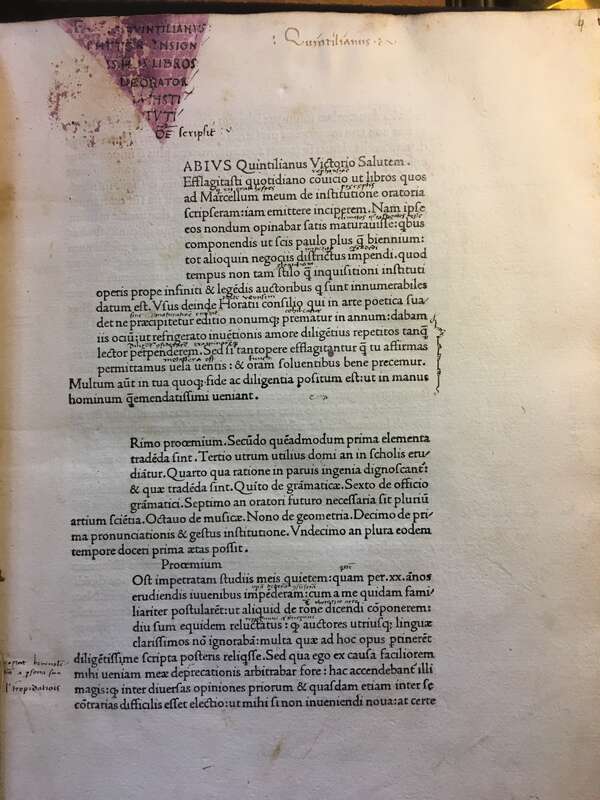 : Quintilianus :
4
QUINTILIANUS
LIBROS
ORATOR
INSTI
TUTI
OE scripsit
ABIVS Quintilianus Victorio Salutem.
Efflagitasti quotidiano cõuicio ut libros quos
ad Marcellum meum de institutione oratoria
scripseram:iam emittere inciperem.Nam ipse
eos nondum opinabar satis maturauisse:qbus
componendis ut scis paulo plus q̃ biennium:
tot alioquin negociis districtus impendi.quod
tempus non tam stilo q̃ inquisitioni instituti
operis prope infiniti & legẽdis auctoribus q sunt innumerabiles
datum est.Vsus deinde Horatii consilio qui in arte poetica sua
det ne præcipitetur editio nonumq; prematur in annum:dabam
iis ociũ:ut refrigerato inuẽtionis amore diligẽtius repetitos tanq̃
lector perpenderem.Sed si tantopere efflagitantur q̃ tu affirmas
permittamus uela uentis:& oram soluentibus bene precemur.
Multum aũt in tua quoq; fide ac diligentia positum est:ut in manus
hominum q̃emendatissimi ueniant.
Rimo procemium.Secũdo quẽadmodum prima elementa
tradẽda sint.Tertio utrum utilius domi an in scholis eru/
diãtur.Quarto qua ratione in paruis ingenia dignoscant᷑:
& quæ tradẽda sint.Quĩto de grãmatica.Sexto de officio
grãmatici.Septimo an oratori futuro necessaria sit pluriũ
artium sciẽtia.Octauo de musica.Nono de geometria.Decimo de pri/
ma pronunciationis & gestus institutione.Vndecimo an plura eodem
tempore doceri prima ætas possit.
Procemium
Ost impetratam studiis meis quietem:quam per.xx.ãnos
erudiendis iuuenibus impẽderam:cum a me quidam fami/
liariter postularẽt:ut aliquid de rõne dicendi cõponerem:
diu sum equidem reluctatus:ꝙ auctores utriusq; linguæ
clarissimos nõ ignorabã:multa quæ ad hoc opus ptinerẽt
diligẽtissime scripta posteris reliq̃sse.Sed qua ego ex causa faciliorem
mihi ueniam meæ deprecationis arbitrabar fore:hac accendebant᷑ illi
magis:ꝙ inter diuersas opiniones priorum & quasdam etiam inter se
cõtrarias difficilis esset electio:ut mihi si non inueniendi noua:at certe